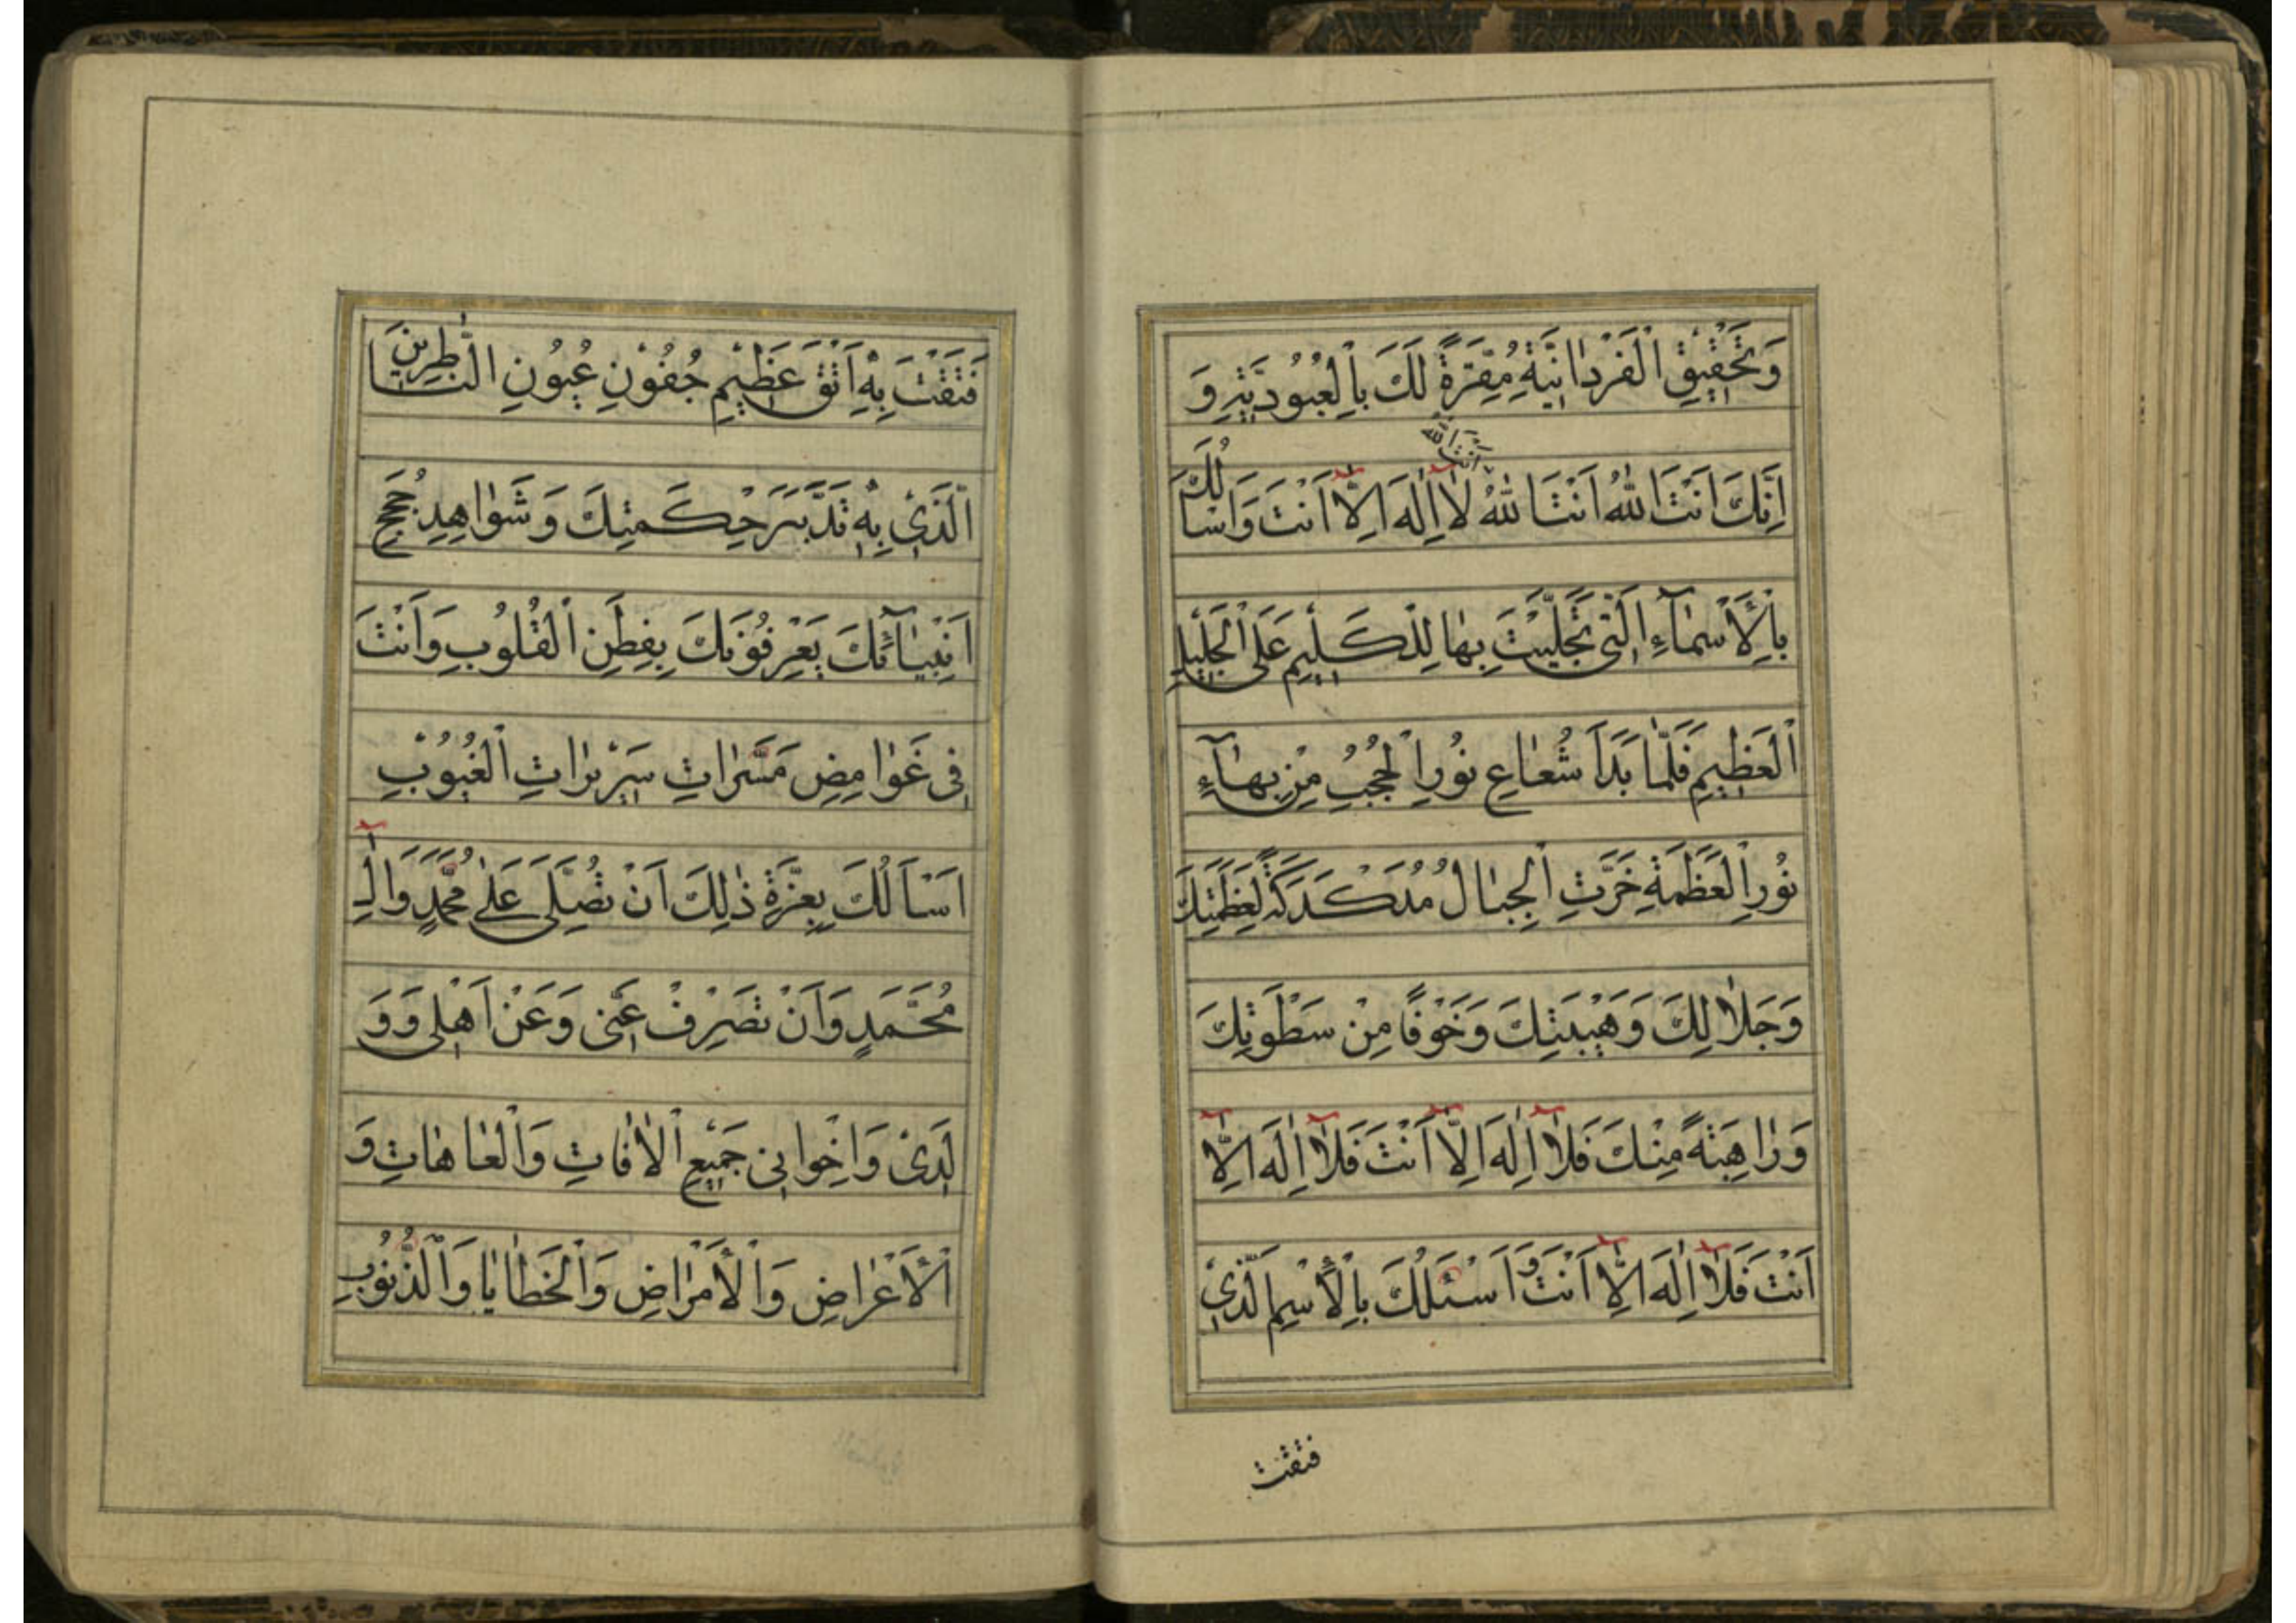 وَتَحْقيقِ الْفَرْدانِيَّةِ مُقِرَّةً لَكَ بِالْعُبُودِيَّةِ وَ
اَنْتَ اللّٰهُ
اِنَّكَ اَنْتَ اللّٰهُ اَنْتَ اللّٰهُ لٰا اِلٰهَ اِلّٰا اَنْتَ وَاَسْاَلُكَ
بِالْاَسْمٰآءِ الَّتى تَجَلَّيْتَ بِهٰا لِلْكَليمِ عَلَى الْجَليلِ
الْعَظيمِ فَلَمّٰا بَدَاَ شُعٰاعِ نُورِ الْحُجُبُ مِنْ بِهٰآءِ
نُورِ الْعَظَمَةِ خَرَّتِ الْجِبٰالُ مُدَكْدَكَةً لِعَظَمَتِكَ
وَجَلٰالِكَ وَهَيْبَتِكَ وَخَوْفًا مِنْ سَطْوَتِكَ
وَرٰاهِبَةً مِنْكَ فَلٰا اِلٰهَ اِلّٰا اَنْتَ فَلٰا اِلٰهَ اِلّٰا
اَنْتَ فَلٰا اِلٰهَ اِلّٰا اَنْتَ وَ اَسْئَلُكَ بِالْاِسْمِ الَّذي
فتقت
فَتَقْتَ بِهِ اَتْقَ عَظيمِ جُفُونِ عُيُونِ النّٰاظِرينَ
الَّذي بِهِ تَدَّبَّرَ حِكْمَتِكَ وَشَوٰاهِدِ حُجَجِ
اَنْبِيٰآئِكَ يَعْرِفُونَكَ بِفِطَنِ الْقُلُوبِ وَاَنْتَ
فِى غَوٰامِضِ مَسَّرٰاتِ سَريرٰاتِ الْغُيُوبِ
اَسْاَلُكَ بِعِزَّةِ ذٰلِكَ اَنْ تُصَلِّىَ عَلىٰ مُحَمَّدٍ وَالِ
مُحَمَّدٍ وَاَنْ تَصْرِفْ عَنّى وَعَنْ اَهْلى وَ وَ
لَدىْ وَاِخْوانى جَميعِ الْاٰفٰاتِ وَالْعٰاهٰاتِ وَ
الْاَعْرٰاضِ وَالْاَمْرٰاضِ وَالْخَطٰايٰا وَالْذُّنُوبِ